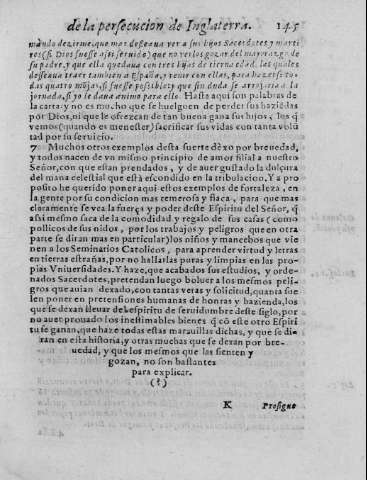 de la persecucion de Inglaterra. 145
mãndo dezirme, que mas desseaua ver a sus hijos Sacerdotes y marti
res (si Dios fuesse assi seruido) que no verlos gozar del mayorazgo de
su padre, y que ella quedaua con tres hijas de tierna edad. las quales
desseaua traer tambien a España, y tener con ellas, para hazerse to-
das quatro mõjas, si fuesse possible; y que sin duda se arrojaria a la
jornada, si yo le daua animo para ello. Hasta aqui son palabras de
la carta: y no es mucho que se huelguen de perder sus haziẽdas
por Dios, ni que le ofrezcan de tan buena gana sus hijos, los q̃
vemos (quando es menester) sacrificar sus vidas con tanta volũ
tad por su seruicio.
7 Muchos otros exemplos desta suerte dexo por breuedad,
y todos nacen de vn mismo principio de amor filial a nuestro
Señor, con que estan prendados, y de auer gustado la dulçura
del mana celestial que està escondido en la tribulacion. Y a pro
posito he querido poner aqui estos exemplos de fortaleza, en
la gente por su condicion mas temerosa y flaca, para que mas
claramente se vea la fuerça y poder deste Espiritu del Señor, q̃
assi mesmo saca de la comodidad y regalo de sus casas (como
pollicos de sus nidos, por los trabajos y peligros que en otra
parte se diran mas en particular) los niños y mancebos que vie
nen a los Seminarios Catolicos, para aprender virtud y letras
en tierras estrañas, por no hallarlas puras y limpias en las pro-
pias Vniuersidades. Y haze, que acabados sus estudios, y orde-
nados Sacerdotes, pretendan luego boluer a los mesmos peli-
gros que auian dexado, con tantas veras y solicitud, quanta sue
len poner en pretensiones humanas de honras y hazienda, los
que se dexan lleuar del espiritu de seruidumbre deste siglo, por
no auer prouado los inestimables bienes q̃ cõ este otro Espiri
tu se ganan, que haze todas estas marauillas dichas, y que se di-
ran en esta historia, y otras muchas que se dexan por bre-
uedad, y que los mesmos que las sienten y
gozan, no son bastantes
para explicar.
(?)
K Prosigue